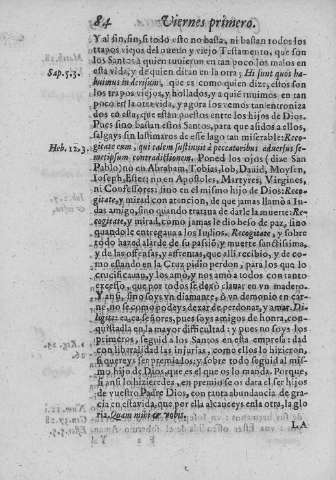 84 Viernes primero.
Y al fin, fin, si todo esto no basta, ni bastan todos los
trapos viejos del nueuo y viejo Testamento, que son
los Santos à quien tuuieron en tan poco los malos en
esta vida, y de quien diran en la otra; Hi sunt quos ha-
Sap. 5.3.
buimus in derisum, que es como quien dize; estos son
los trapos viejos, y hollados, y a quiē tuuimos en tan
poco en la otra vida, y agora los vemos tan entroniza
dos en esta, que están puestos entre los hijos de Dios.
Pues sino bastan estos Santos, para que asidos a ellos,
salgays sin lastimaros de esse lago tan miserable: Reco-
Heb. 12.3.
gitate eum, qui talem sustinuit à peccatoribus aduersus se-
metipsum contradictionem. Poned los ojos (dize San
Pablo) no en Abraham, Tobias, Iob, Dauid, Moysen,
Ioseph, Ester: no en Apostoles, Martyres, Virgines,
ni Confessores: sino en el mismo hijo de Dios: Reco-
gitate, y mirad con atencion, de que jamas llamò a Iu-
das amigo, sino quando trataua de darle la muerte: Re-
cogitate, y mirad, como jamas le dio beso de paz, sino
quando le entregaua a los Iudios. Recogitate, y sobre
todo hazed alarde de su passiō, y muerte santissima,
y de las ofensas, y afrentas, que alli recibio, y de co-
mo estando en la Cruz pidio perdon, para los que lo
crucificauan, y los amò, y nos amò a todos con tanto
excesso, que por todos se dexò clauar en vn madero.
Y assi, sino soys vn diamante, ò vn demonio en car-
ne, no se como podeys dexar de perdonar, y amar. Di-
ligite: ea, ea señores, pues soys amigos de honra, con-
quistadla en la mayor dificultad: y pues no soys los
primeros, seguid a los Santos en esta empresa: dad
con liberalidad las injurias, como ellos lo hizieron,
si quereys ser premiados; y sobre todo seguid al mis-
mo hijo de Dios, que es el que os lo manda. Porque,
si assi lo hizieredes, en premio se os dara el ser hijos
de vuestro Padre Dios, con tanta abundancia de gra-
cia en esta vida, que por ella alcanceys en la otra, la glo
ria. Quam mihi & vobis.
LA